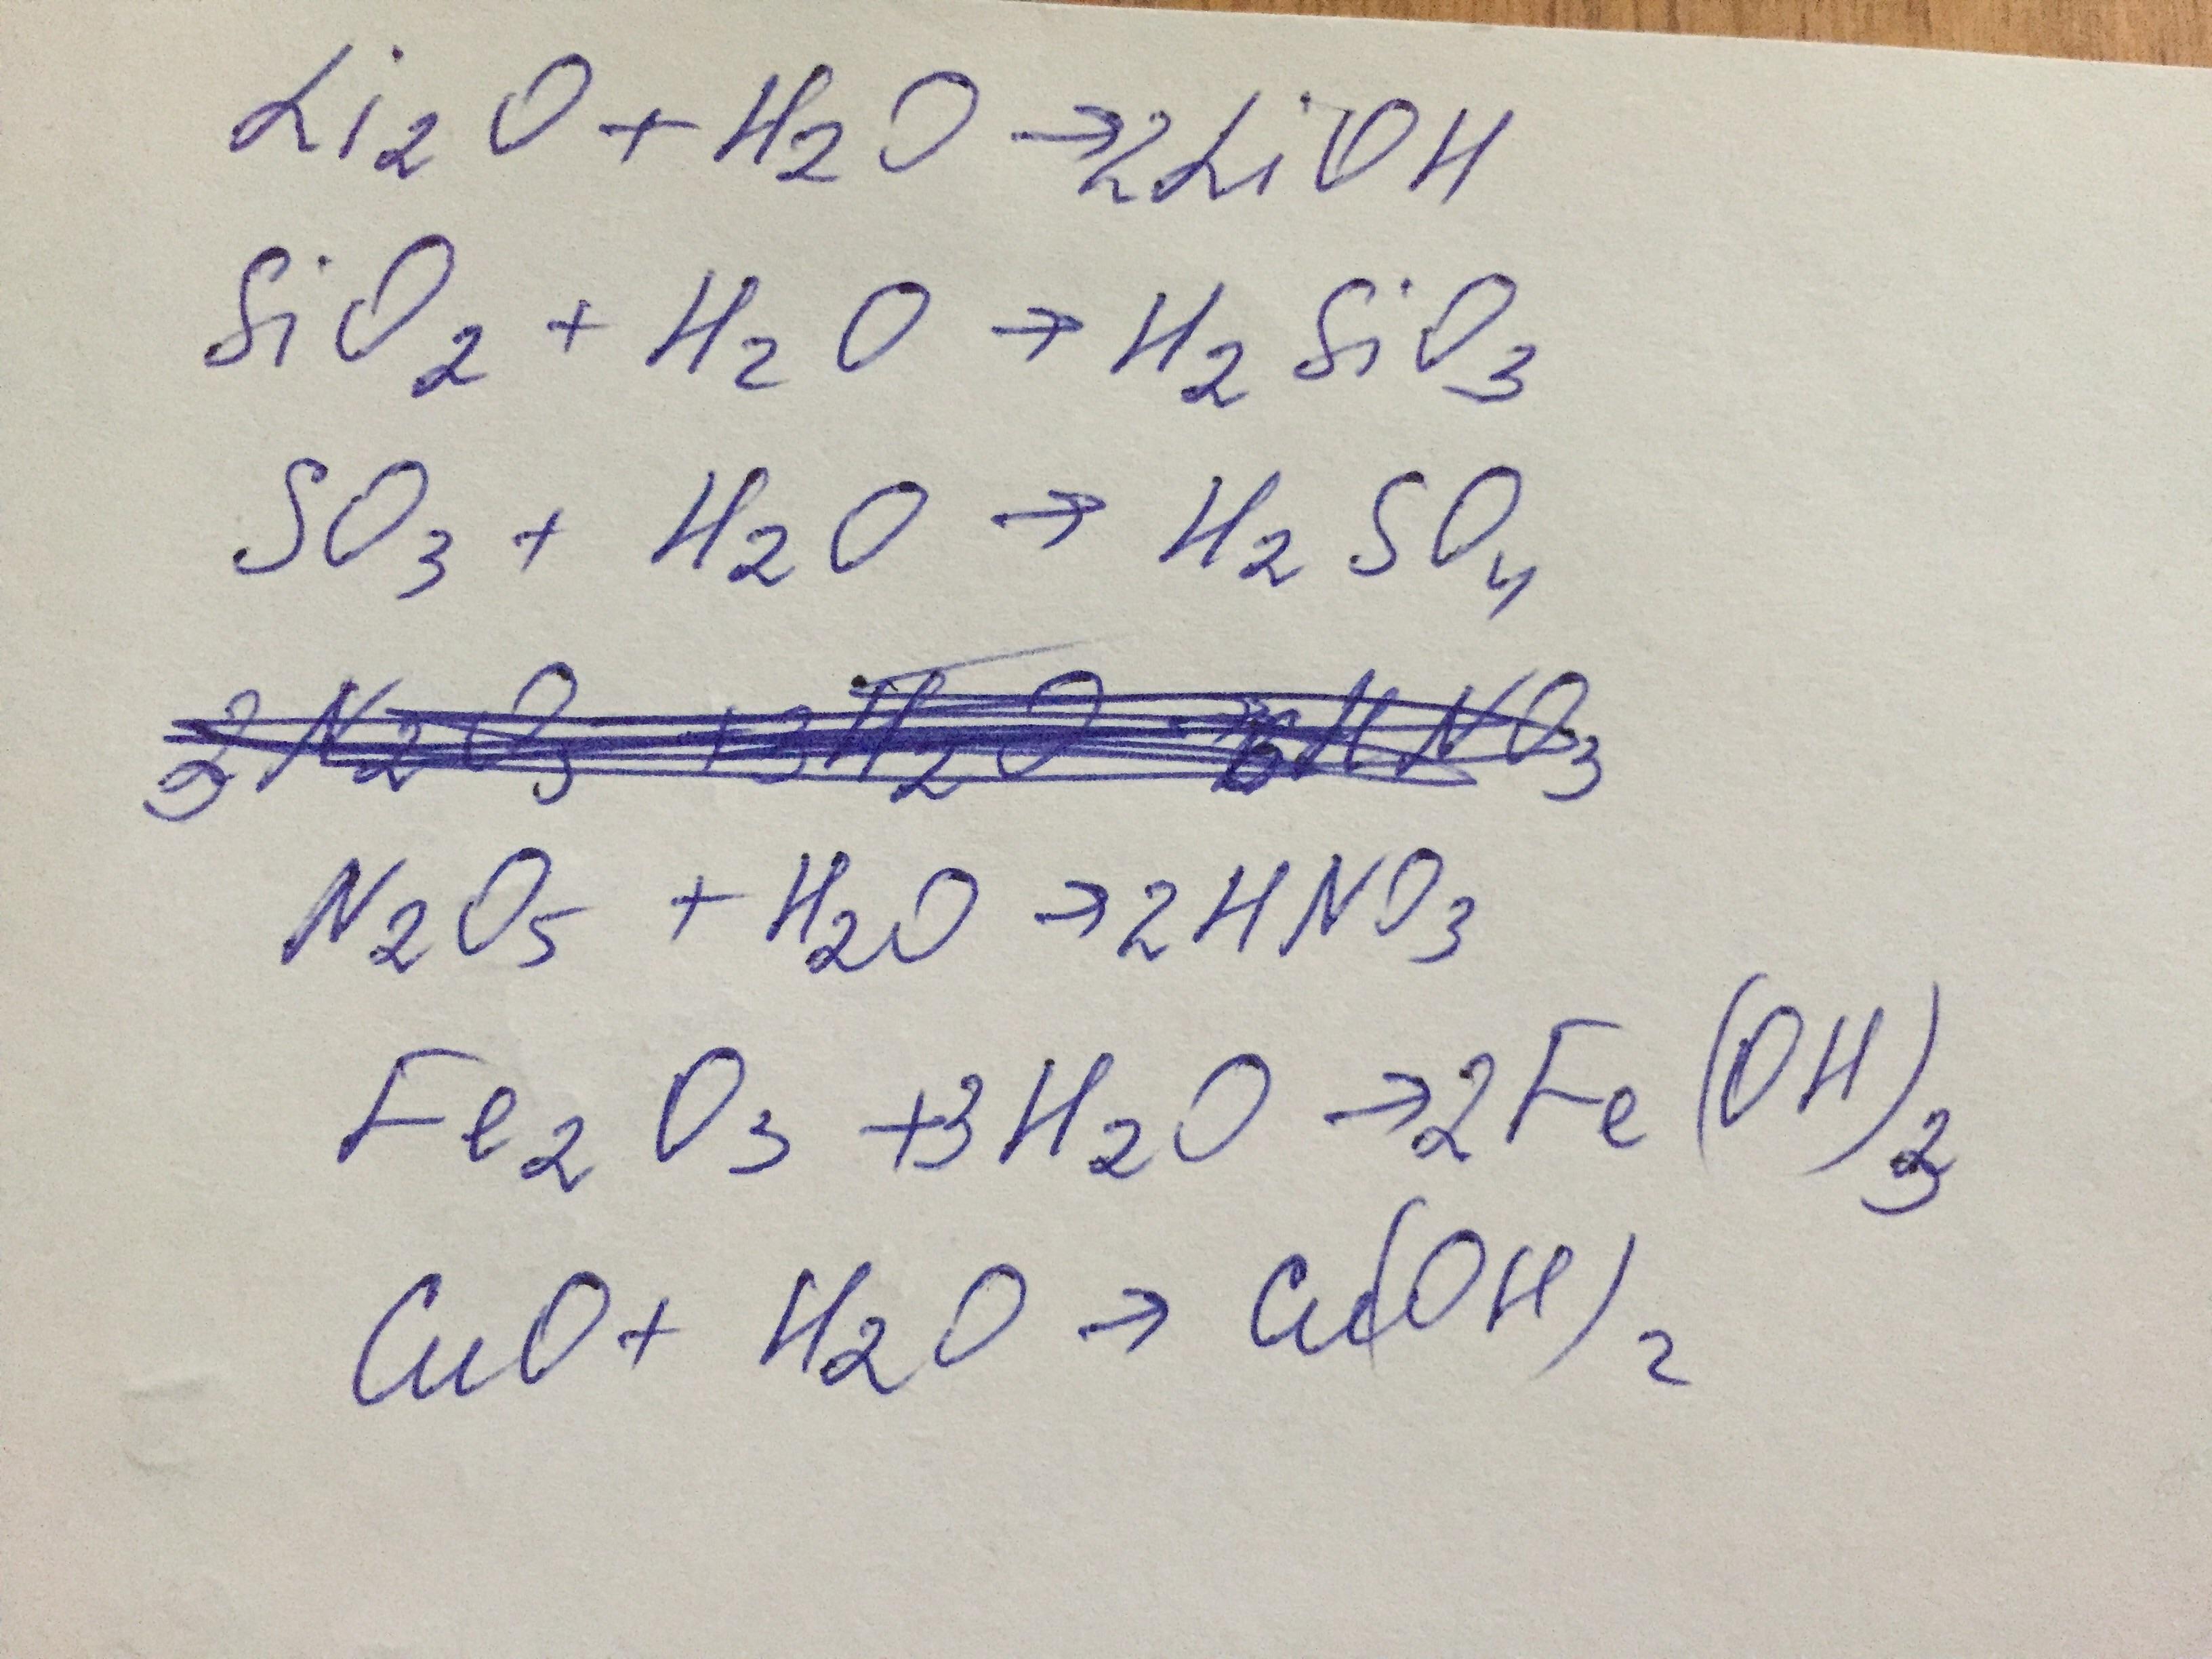 Li₂O + H₂O → 2LiOH
SiO₂ + H₂O → H₂SiO₃
SO₃ + H₂O → H₂SO₄
N₂O₅ + H₂O → 2HNO₃
Fe₂O₃ + 3H₂O → 2Fe(OH)₃
CuO + H₂O → Cu(OH)₂